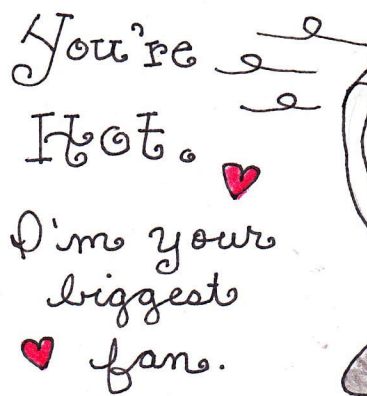 You're
Hot.
I'm your
biggest
fan.